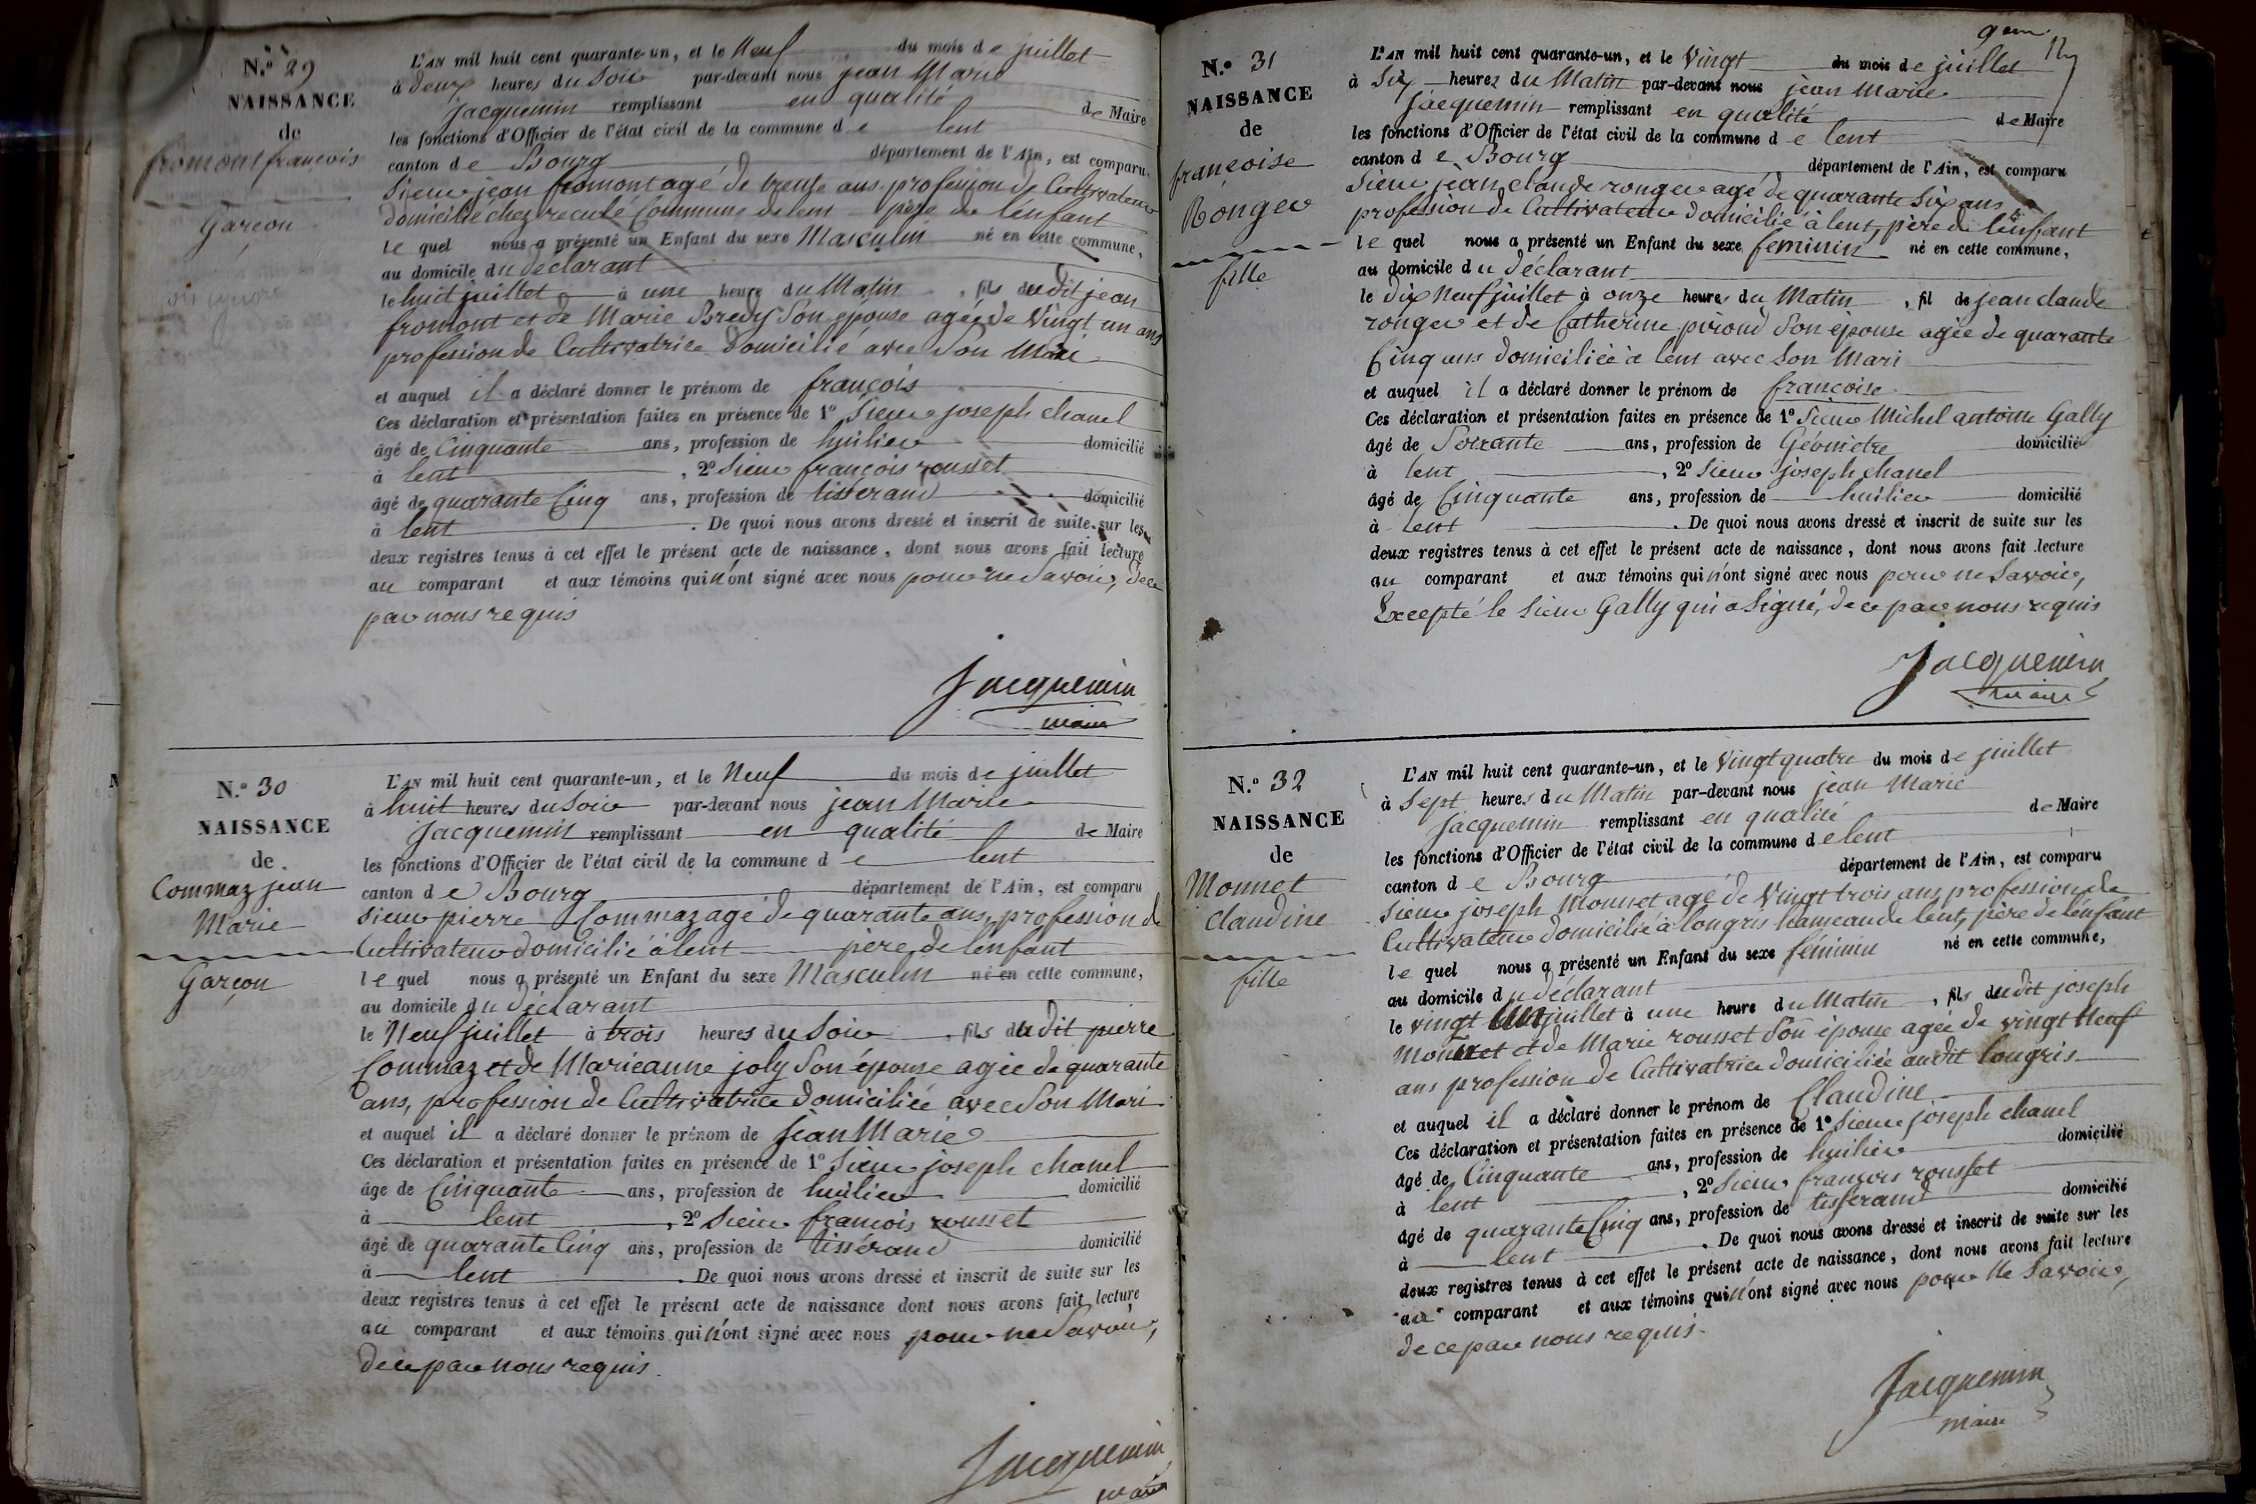 N.º 29
NAISSANCE
de
fromont françois
Garçon
L'AN mil huit cent quarante-un, et le Neuf du mois de juillet
à deux heures du Soir par-devant nous jean Marie
jacquemin remplissant en qualité de Maire
les fonctions d'Officier de l'état civil de la commune de lent
canton de Bourg département de l'Ain, est comparu
Sieur jean fromont agé de trente ans profession de Cultivateur
domicilié chez reculé Commune de lent père de l'enfant
le quel nous a présenté un Enfant du sexe Masculin né en cette commune,
au domicile du déclarant
le huit juillet à une heure du Matin, fils dudit jean
fromont et de Marie Bredy Son épouse agée de Vingt un ans
profession de Cultivatrice domicilié avec Son Mari
et auquel il a déclaré donner le prénom de françois
Ces déclaration et présentation faites en présence de 1º Sieur joseph chanel
âgé de Cinquante ans, profession de huilier domicilié
à lent, 2º Sieur françois rousset
âgé de quarante Cinq ans, profession de tisserand domicilié
à lent. De quoi nous avons dressé et inscrit de suite sur les
deux registres tenus à cet effet le présent acte de naissance, dont nous avons fait lecture
au comparant et aux témoins qui n'ont signé avec nous pour ne Savoir, de ce
par nous requis
Jacquemin
maire
N.º 30
NAISSANCE
de
Commaz jean
Marie
Garçon
L'AN mil huit cent quarante-un, et le Neuf du mois de juillet
à huit heures du Soir par-devant nous jean Marie
jacquemin remplissant en qualité de Maire
les fonctions d'Officier de l'état civil de la commune de lent
canton de Bourg département de l'Ain, est comparu
Sieur pierre Commaz agé de quarante ans, profession de
Cultivateur domicilié à lent père de l'enfant
le quel nous a présenté un Enfant du sexe Masculin né en cette commune,
au domicile du déclarant
le Neuf juillet à trois heures du Soir, fils dudit pierre
Commaz et de Marieanne joly Son épouse agée de quarante
ans, profession de Cultivatrice domiciliée avec Son Mari
et auquel il a déclaré donner le prénom de jean Marie
Ces déclaration et présentation faites en présence de 1º Sieur joseph chanel
âge de Cinquante ans, profession de huilier domicilié
à lent, 2º Sieur françois rousset
âgé de quarante Cinq ans, profession de tissérand domicilié
à lent. De quoi nous avons dressé et inscrit de suite sur les
deux registres tenus à cet effet le présent acte de naissance dont nous avons fait lecture
au comparant et aux témoins qui n'ont signé avec nous pour ne Savoir,
de ce par nous requis.
Jacquemin
maire
N.º 31
NAISSANCE
de
françoise
Ronger
fille
L'AN mil huit cent quarante-un, et le Vingt du mois de juillet
à Six heures du Matin par-devant nous jean Marie
jacquemin remplissant en qualité de Maire
les fonctions d'Officier de l'état civil de la commune de lent
canton de Bourg département de l'Ain, est comparu
Sieur jean claude ronger agé de quarante Six ans
profession de Cultivateur domicilié à lent, père de l'enfant
le quel nous a présenté un Enfant du sexe féminin né en cette commune,
au domicile du déclarant
le dix Neuf juillet à onze heures du Matin, fil de jean claude
ronger et de Catherine piroud Son épouse agée de quarante
Cinq ans domiciliée à lent avec Son Mari
et auquel il a déclaré donner le prénom de françoise
Ces déclaration et présentation faites en présence de 1º Sieur Michel antoine Gally
âgé de Soixante ans, profession de Géomètre domicilié
à lent, 2º Sieur joseph chanel
âgé de Cinquante ans, profession de huilier domicilié
à lent. De quoi nous avons dressé et inscrit de suite sur les
deux registres tenus à cet effet le présent acte de naissance, dont nous avons fait lecture
au comparant et aux témoins qui n'ont signé avec nous pour ne Savoir,
Excepté le Sieur Gally qui a Signé, de ce par nous requis
Jacquemin
maire
N.º 32
NAISSANCE
de
Monnet
claudine
fille
L'AN mil huit cent quarante-un, et le Vingt quatre du mois de juillet
à Sept heures du Matin par-devant nous jean Marie
jacquemin remplissant en qualité de Maire
les fonctions d'Officier de l'état civil de la commune de lent
canton de Bourg département de l'Ain, est comparu
Sieur joseph Monnet agé de Vingt trois ans profession de
Cultivateur domicilié à longris hameau de lent, père de l'enfant
le quel nous a présenté un Enfant du sexe féminin né en cette commune,
au domicile du déclarant
le vingt juillet à une heure du Matin, fils dudit joseph
Monnet et de Marie rousset Son épouse agée de vingt Neuf
ans profession de Cultivatrice domiciliée audit longris
et auquel il a déclaré donner le prénom de Claudine
Ces déclaration et présentation faites en présence de 1º Sieur joseph chanel
âgé de Cinquante ans, profession de huilier domicilié
à lent, 2º Sieur françois rousset
âgé de quarante Cinq ans, profession de tisserand domicilié
à lent. De quoi nous avons dressé et inscrit de suite sur les
deux registres tenus à cet effet le présent acte de naissance, dont nous avons fait lecture
au comparant et aux témoins qui n'ont signé avec nous pour Ne Savoir,
de ce par nous requis.
Jacquemin
maire